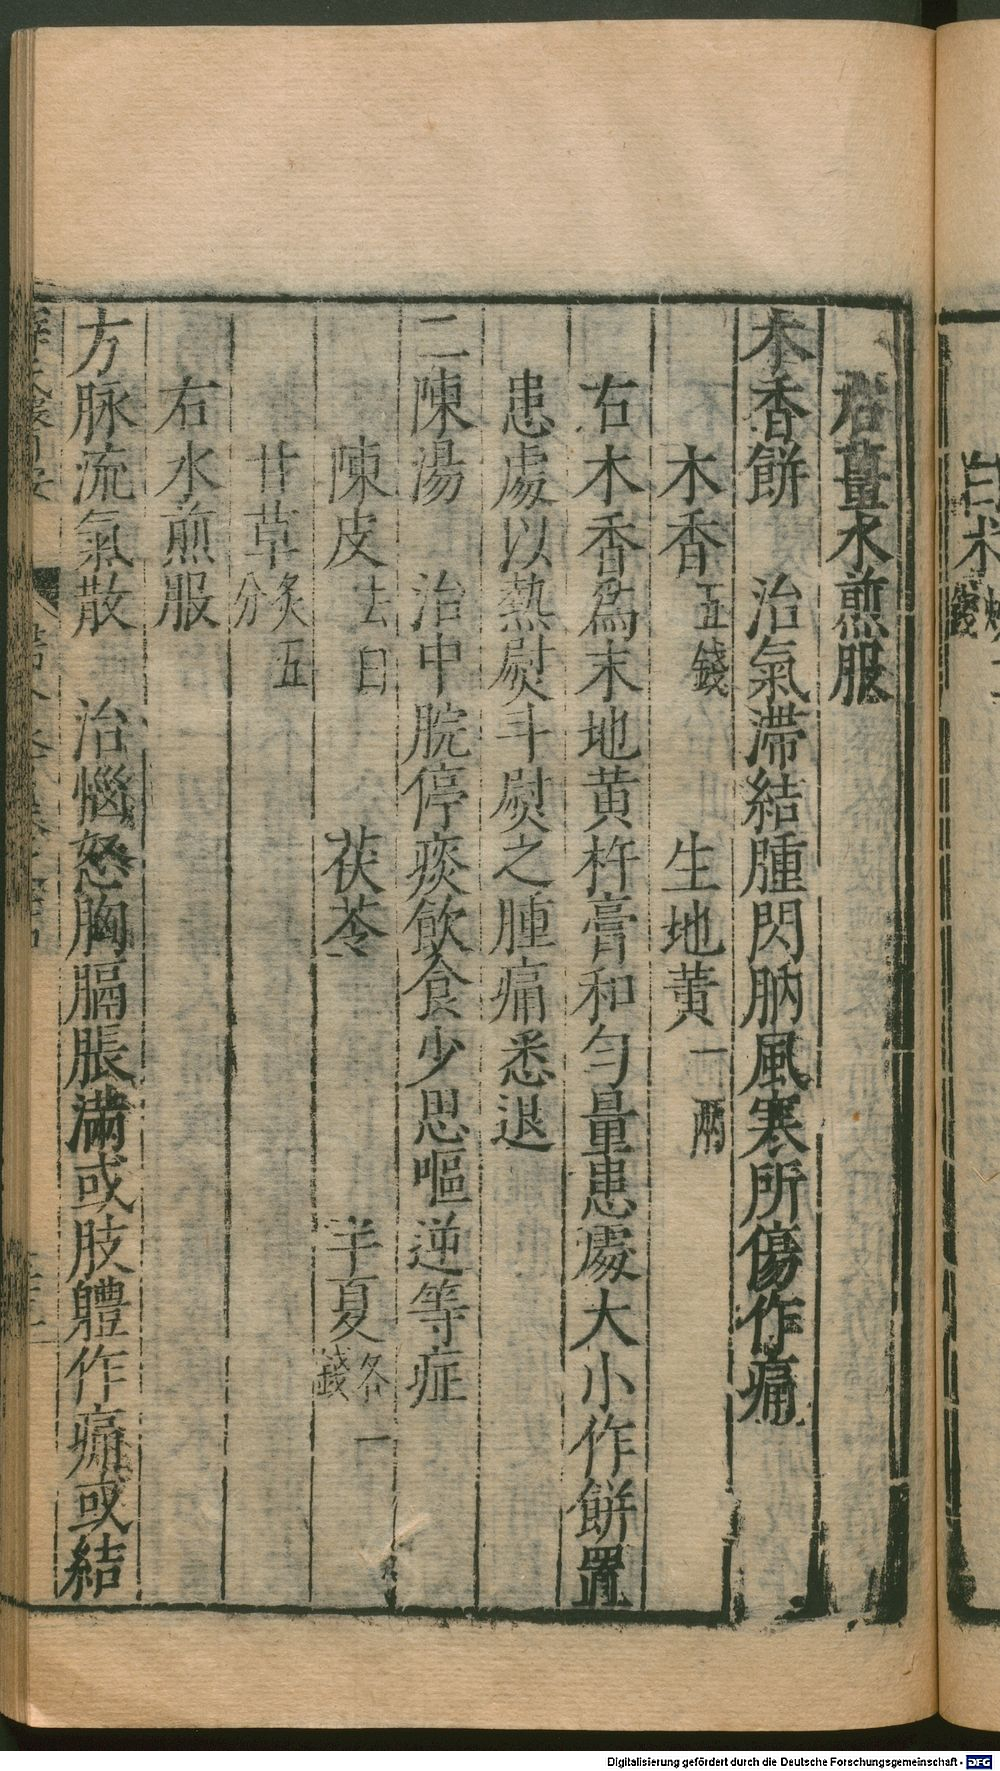 白术
右薑水煎服
木香餅　治氣滯結腫閃肭風寒所傷作痛
木香五錢　生地黄一兩
右木香爲末地黄杵膏和勻量患處大小作餅置
患處以熱熨斗熨之腫痛悉退
二陳湯　治中脘停痰飲食少思嘔逆等症
陳皮去白　茯苓　半夏各一錢
甘草炙五分
右水煎服
方脉流氣散　治惱怒胸膈脹滿或肢體作痛或結
Digitalisierung gefördert durch die Deutsche Forschungsgemeinschaft - DFG